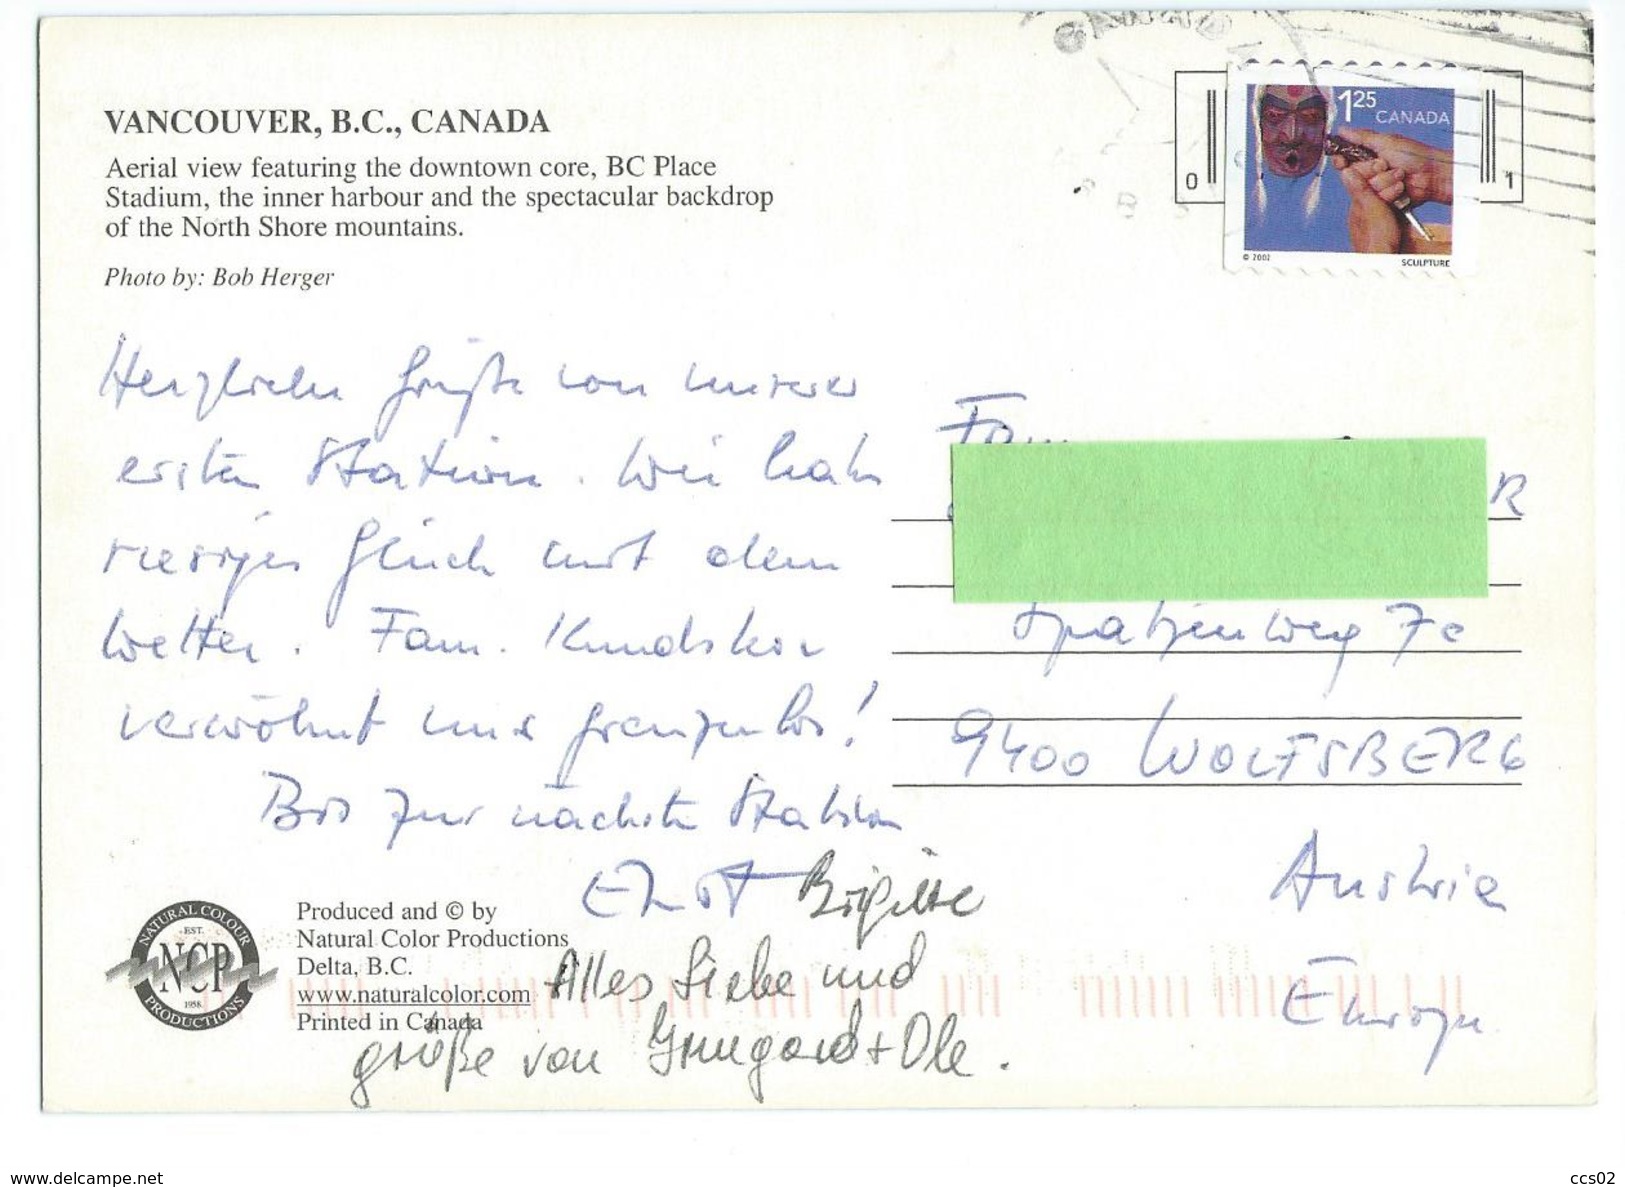 VANCOUVER, B.C., CANADA
Aerial view featuring the downtown core, BC Place
Stadium, the inner harbour and the spectacular backdrop
of the North Shore mountains.
Photo by: Bob Herger
1 25 CANADA
0 1
© 2002 SCULPTURE
Herzliche Grüße von unserer
ersten Station. Wir haben
riesiges Glück mit dem
Wetter. Fam.
verwöhnt uns grenzenlos!
Bis zur nächsten Station
Ernst Brigitte
Alles Liebe und
grüße von Irmgard + Ole.
Fam
R
Spatzenweg 7c
9400 WOLFSBERG
Austria
Europe
NATURAL COLOUR
EST.
NCP
1958
PRODUCTIONS
Produced and © by
Natural Color Productions
Delta, B.C.
www.naturalcolor.com
Printed in Canada
www.delcampe.net
ccs02